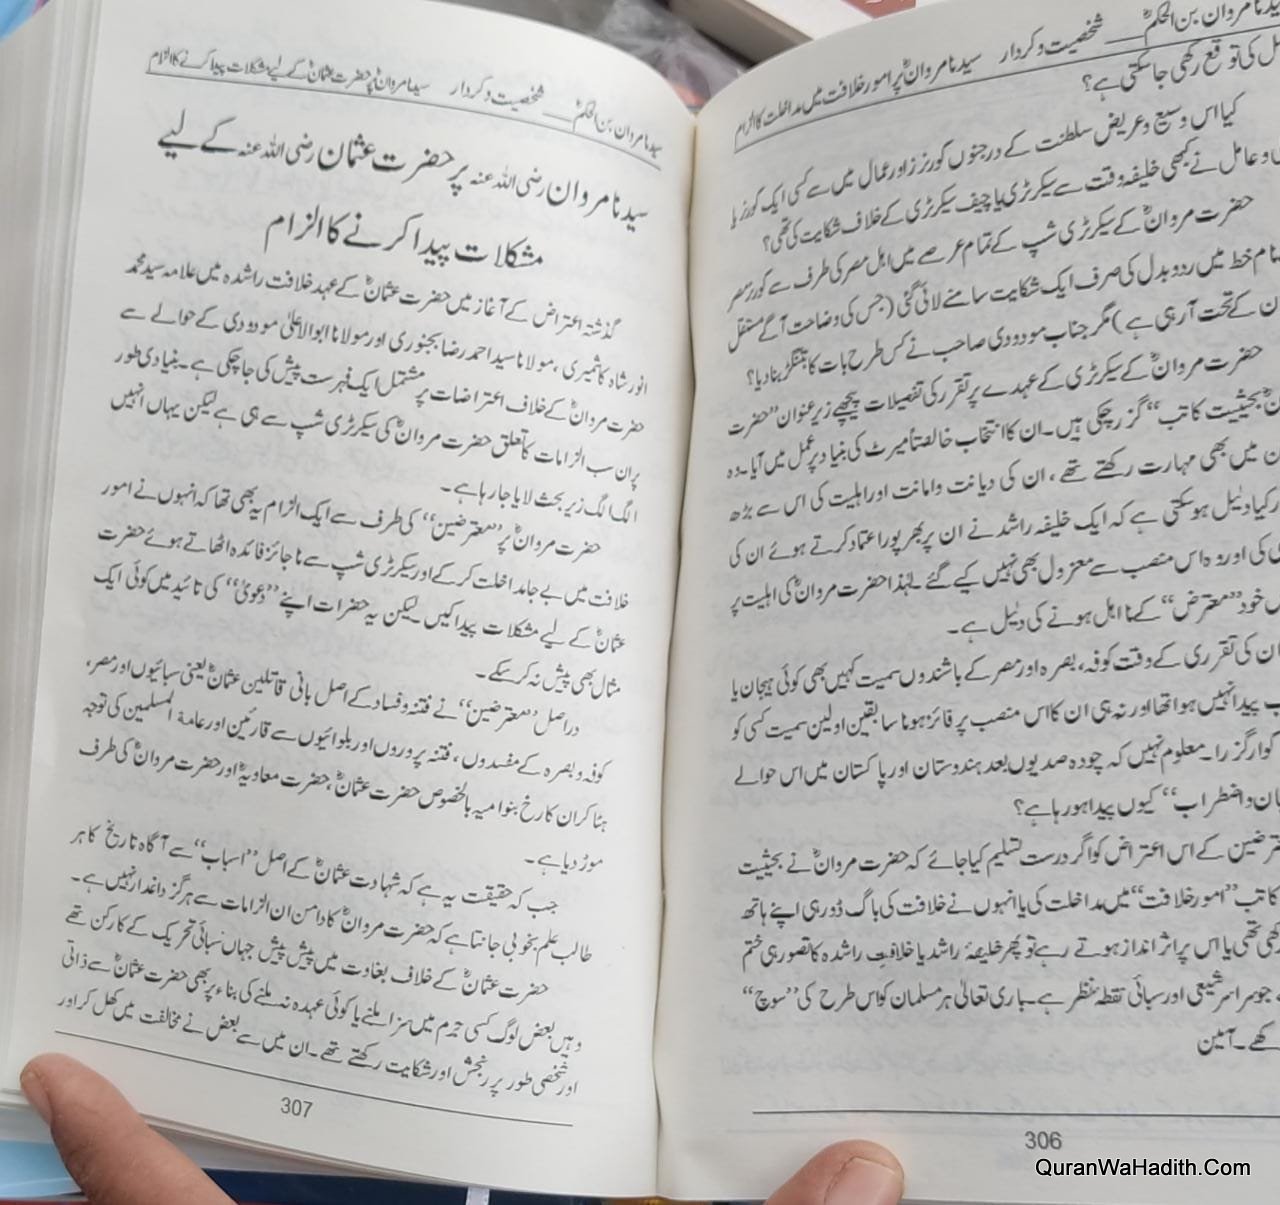 سیدنا مروان بن الحکمؓ ___ شخصیت و کردار سیدنا مروانؓ پر امور خلافت میں مداخلت کا الزام
کی توقع رکھی جا سکتی ہے؟
کیا اس وسیع و عریض سلطنت کے درجنوں گورنرز اور عمال میں سے کسی ایک گورنر یا
و عامل نے کبھی خلیفہ وقت سے سیکرٹری یا چیف سیکرٹری کے خلاف شکایت کی تھی؟
حضرت مروانؓ کے سیکرٹری شپ کے تمام عرصے میں اہل مصر کی طرف سے گورنر مصر
نام خط میں ردو بدل کی صرف ایک شکایت سامنے لائی گئی (جس کی وضاحت آگے مستقل
ان کے تحت آ رہی ہے) مگر جناب مودودی صاحب نے کس طرح بات کا بتنگڑ بنا دیا؟
حضرت مروانؓ کے سیکرٹری کے عہدے پر تقرر کی تفصیلات پیچھے زیر عنوان "حضرت
بحیثیت کاتب" گزر چکی ہیں۔ ان کا انتخاب خالصتاً میرٹ کی بنیاد پر عمل میں آیا۔ وہ
میں بھی مہارت رکھتے تھے، ان کی دیانت و امانت اور اہلیت کی اس سے بڑھ
کیا دلیل ہو سکتی ہے کہ ایک خلیفہ راشد نے ان پر بھرپور اعتماد کرتے ہوئے ان کی
کی اور وہ اس منصب سے معزول بھی نہیں کیے گئے لہٰذا حضرت مروانؓ کی اہلیت پر
خود "معترض" کے نااہل ہونے کی دلیل ہے۔
ان کی تقرری کے وقت کوفہ، بصرہ اور مصر کے باشندوں سمیت کہیں بھی کوئی ہیجان یا
پیدا نہیں ہوا تھا اور نہ ہی ان کا اس منصب پر فائز ہونا سابقین اولین سمیت کسی کو
گوار گزرا۔ معلوم نہیں کہ چودہ صدیوں بعد ہندوستان اور پاکستان میں اس حوالے
و اضطراب" کیوں پیدا ہو رہا ہے؟
کے اس اعتراض کو اگر درست تسلیم کیا جائے کہ حضرت مروانؓ نے بحیثیت
کاتب "امور خلافت" میں مداخلت کی یا انہوں نے خلافت کی باگ ڈور ہی اپنے ہاتھ
تھی یا اس پر اثر انداز ہوتے رہے تو پھر خلیفۂ راشد یا خلافتِ راشدہ کا تصور ہی ختم
جو سراسر شیعی اور سبائی نقطہ نظر ہے۔ باری تعالیٰ ہر مسلمان کو اس طرح کی "سوچ"
آمین
306
سیدنا مروان بن الحکمؓ ___ شخصیت و کردار سیدنا مروانؓ پر حضرت عثمانؓ کے لیے مشکلات پیدا کرنے کا الزام
سیدنا مروان رضی اللہ عنہ پر حضرت عثمان رضی اللہ عنہ کے لیے
مشکلات پیدا کرنے کا الزام
گذشتہ اعتراض کے آغاز میں حضرت عثمانؓ کے عہد خلافت راشدہ میں علامہ سید محمد
انور شاہ کاشمیری، مولانا سید احمد رضا بجنوری اور مولانا ابوالاعلیٰ مودودی کے حوالے سے
حضرت مروانؓ کے خلاف اعتراضات پر مشتمل ایک فہرست پیش کی جا چکی ہے۔ بنیادی طور
پر ان سب الزامات کا تعلق حضرت مروانؓ کی سیکرٹری شپ سے ہی ہے لیکن یہاں انہیں
الگ الگ زیر بحث لایا جا رہا ہے۔
حضرت مروانؓ پر "معترضین" کی طرف سے ایک الزام یہ بھی تھا کہ انہوں نے امور
خلافت میں بے جا مداخلت کر کے اور سیکرٹری شپ سے ناجائز فائدہ اٹھاتے ہوئے حضرت
عثمانؓ کے لیے مشکلات پیدا کیں لیکن یہ حضرات اپنے "دعویٰ" کی تائید میں کوئی ایک
مثال بھی پیش نہ کر سکے۔
دراصل "معترضین" نے فتنہ و فساد کے اصل بانی قاتلین عثمانؓ یعنی سبائیوں اور مصر،
کوفہ و بصرہ کے مفسدوں، فتنہ پروروں اور بلوائیوں سے قارئین اور عامۃ المسلمین کی توجہ
ہٹا کر ان کا رخ بنو امیہ بالخصوص حضرت عثمانؓ، حضرت معاویہؓ اور حضرت مروانؓ کی طرف
موڑ دیا ہے۔
جب کہ حقیقت یہ ہے کہ شہادت عثمانؓ کے اصل "اسباب" سے آگاہ تاریخ کا ہر
طالب علم بخوبی جانتا ہے کہ حضرت مروانؓ کا دامن ان الزامات سے ہرگز داغدار نہیں ہے۔
حضرت عثمانؓ کے خلاف بغاوت میں پیش پیش جہاں سبائی تحریک کے کارکن تھے
وہیں بعض لوگ کسی جرم میں سزا ملنے یا کوئی عہدہ نہ ملنے کی بناء پر بھی حضرت عثمانؓ سے ذاتی
اور شخصی طور پر رنجش اور شکایت رکھتے تھے۔ ان میں سے بعض نے مخالفت میں کھل کر اور
307
QuranWaHadith.Com